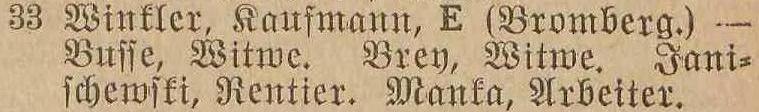 33 Winkler, Kaufmann, E (Bromberg.) —
Busse, Witwe. Brey, Witwe. Jani=
schewski, Rentier. Manka, Arbeiter.